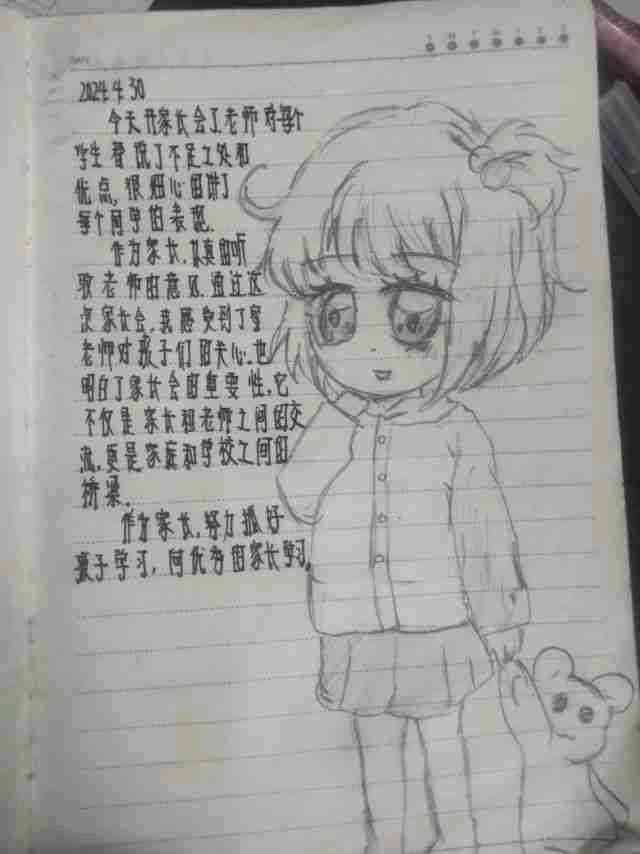 DATE
S M T W T F S
2024.4.30
今天开家长会了老师对每个
学生都说了不足之处和
优点,很细心的讲了
每个同学的表现.
作为家长,认真的听
取老师的意见.通过这
次家长会,我感受到了
老师对孩子们的关心.也
明白了家长会的重要性,它
不仅是家长和老师之间的交
流,更是家庭和学校之间的
桥梁.
作为家长,努力抓好
孩子学习,向优秀的家长学习.